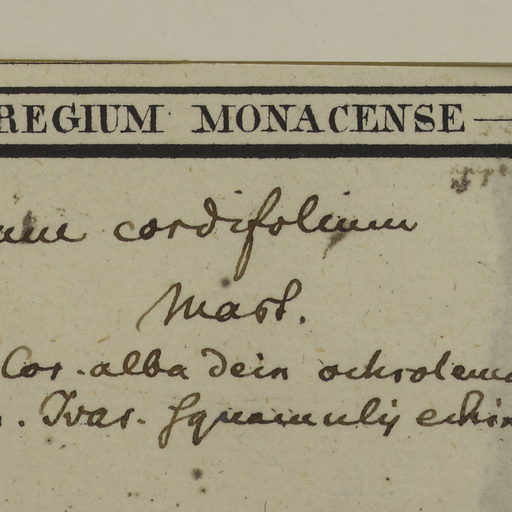 REGIUM MONACENSE
cordifolium
Mart.
Cor. alba dein ochroleuca
Ivar. Squamulis echin